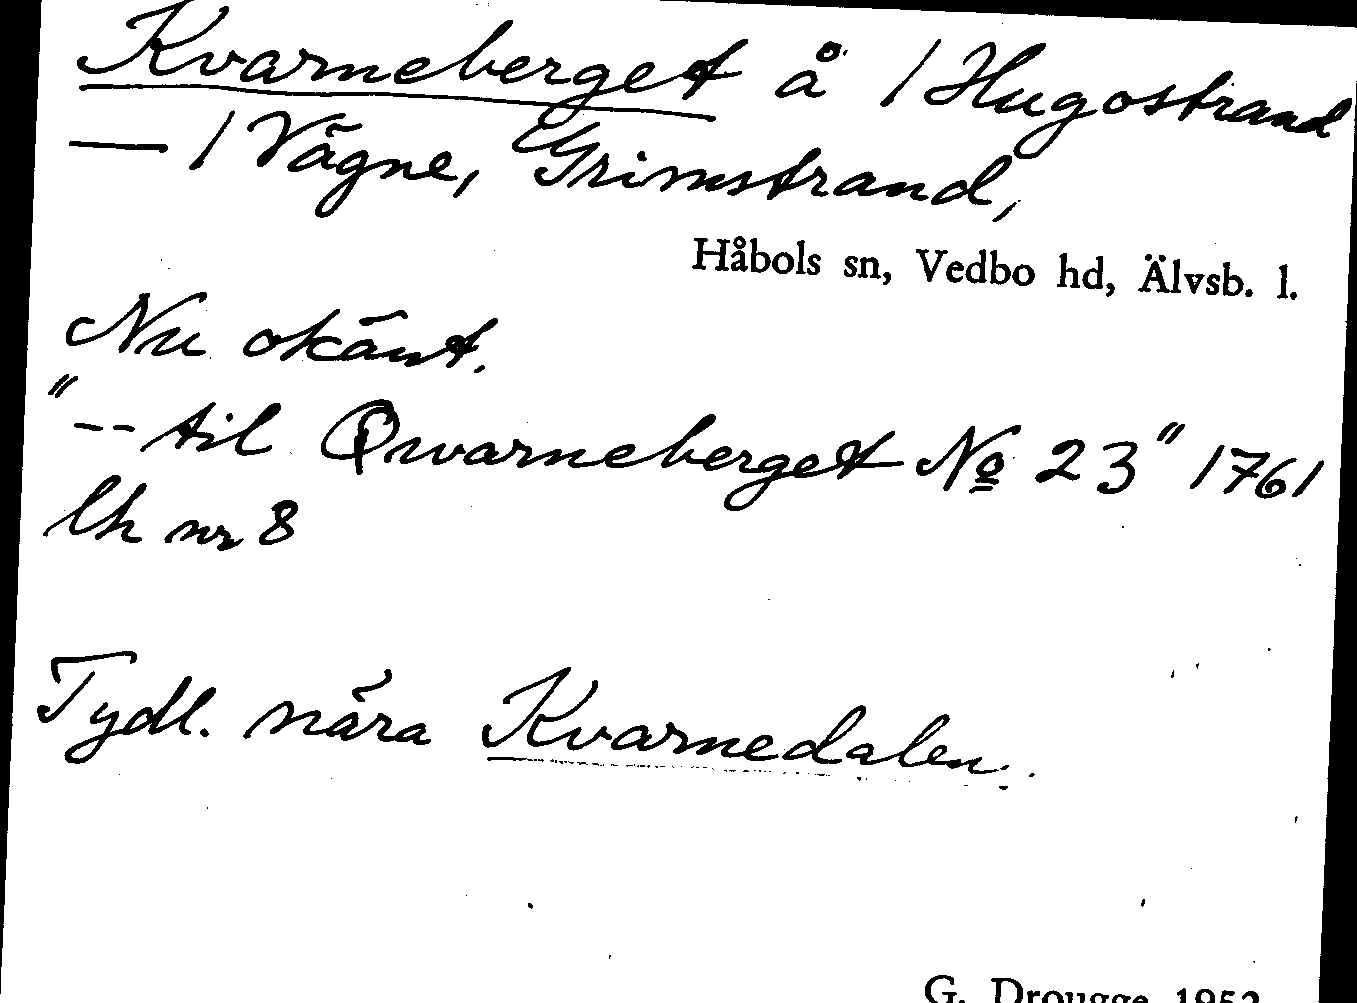 Kvarneberget å 1 Hugostrand
— 1 Vägne, Grimstrand,
Håbols sn, Vedbo hd, Älvsb. l.
Nu okänt.
"-- til Qwarneberget No 23" 1761
lh nr 8
Tydl. nära Kvarnedalen.
G. Drougge 1952